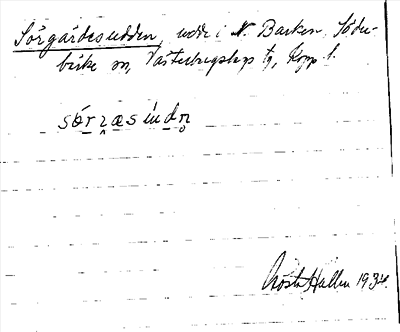 Sörgårdesudden, udde i N. Barken, Söder-
birke sn, Västerbergslags tg, Kopp. l.
sórzæsúdn̥
Gösta Hallén 1934.